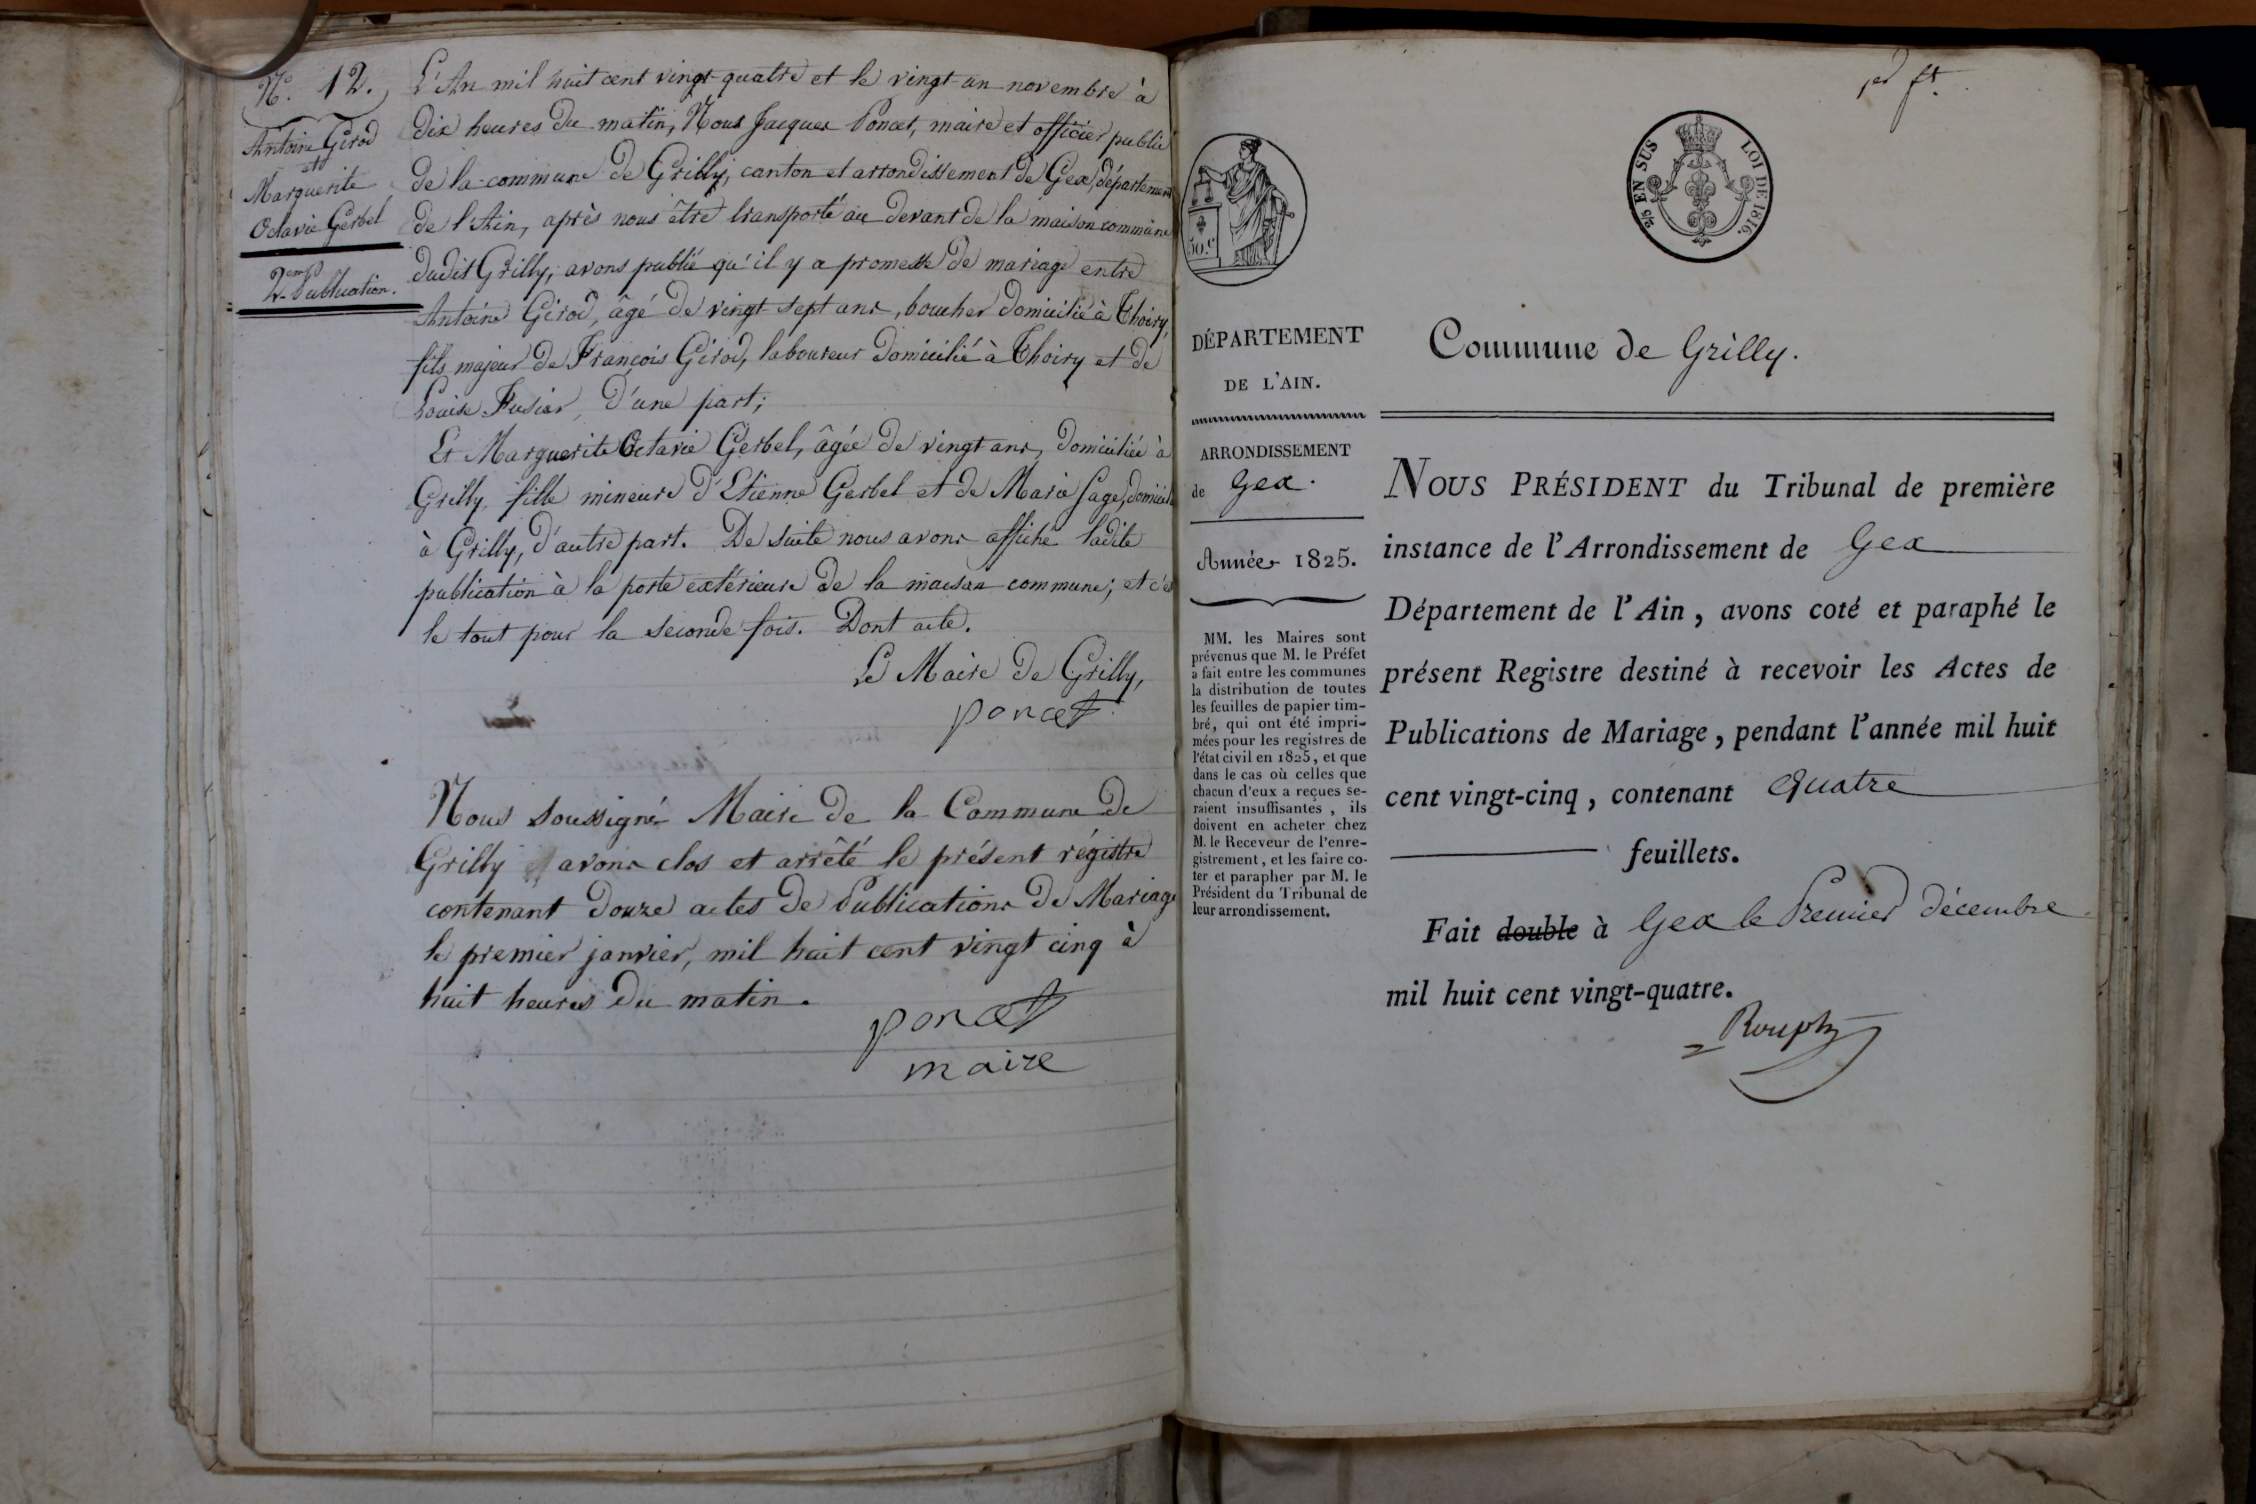 N.° 12.
Antoine Girod
et
Marguerite
Octavie Gerbel
2.eme Publication.
L'An mil huit cent vingt-quatre et le vingt-un novembre à
dix heures du matin, Nous Jacques Poncet, maire et officier public
de la commune de Grilly, canton et arrondissement de Gex, département
de l'Ain, après nous être transporté au devant de la maison commune
dudit Grilly, avons publié qu'il y a promesse de mariage entre
Antoine Girod, âgé de vingt-sept ans, boucher domicilié à Thoiry,
fils majeur de François Girod, laboureur domicilié à Thoiry et de
Louise Fusier, d'une part;
Et Marguerite Octavie Gerbel, âgée de vingt ans, domiciliée à
Grilly, fille mineure d'Etienne Gerbel et de Marie Sage, domicil
à Grilly, d'autre part. De suite nous avons affiché ladite
publication à la porte extérieure de la maison commune; et c'est
le tout pour la seconde fois. Dont acte.
Le Maire de Grilly,
poncet
Nous soussigné Maire de la Commune de
Grilly avons clos et arrêté le présent régistre
contenant douze actes de Publications de Mariage
le premier janvier, mil huit cent vingt cinq à
huit heures du matin.
poncet
maire
1er ft.
50.c
2/5 EN SUS
LOI DE 1816.
DÉPARTEMENT
DE L'AIN.
ARRONDISSEMENT
de Gex.
Année 1825.
MM. les Maires sont
prévenus que M. le Préfet
a fait entre les communes
la distribution de toutes
les feuilles de papier tim-
bré, qui ont été impri-
mées pour les registres de
l'état civil en 1825, et que
dans le cas où celles que
chacun d'eux a reçues se-
raient insuffisantes, ils
doivent en acheter chez
M. le Receveur de l'enre-
gistrement, et les faire co-
ter et parapher par M. le
Président du Tribunal de
leur arrondissement.
Commune de Grilly.
NOUS PRÉSIDENT du Tribunal de première
instance de l'Arrondissement de Gex
Département de l'Ain, avons coté et paraphé le
présent Registre destiné à recevoir les Actes de
Publications de Mariage, pendant l'année mil huit
cent vingt-cinq, contenant Quatre
feuillets.
Fait double à Gex le Premier décembre
mil huit cent vingt-quatre.